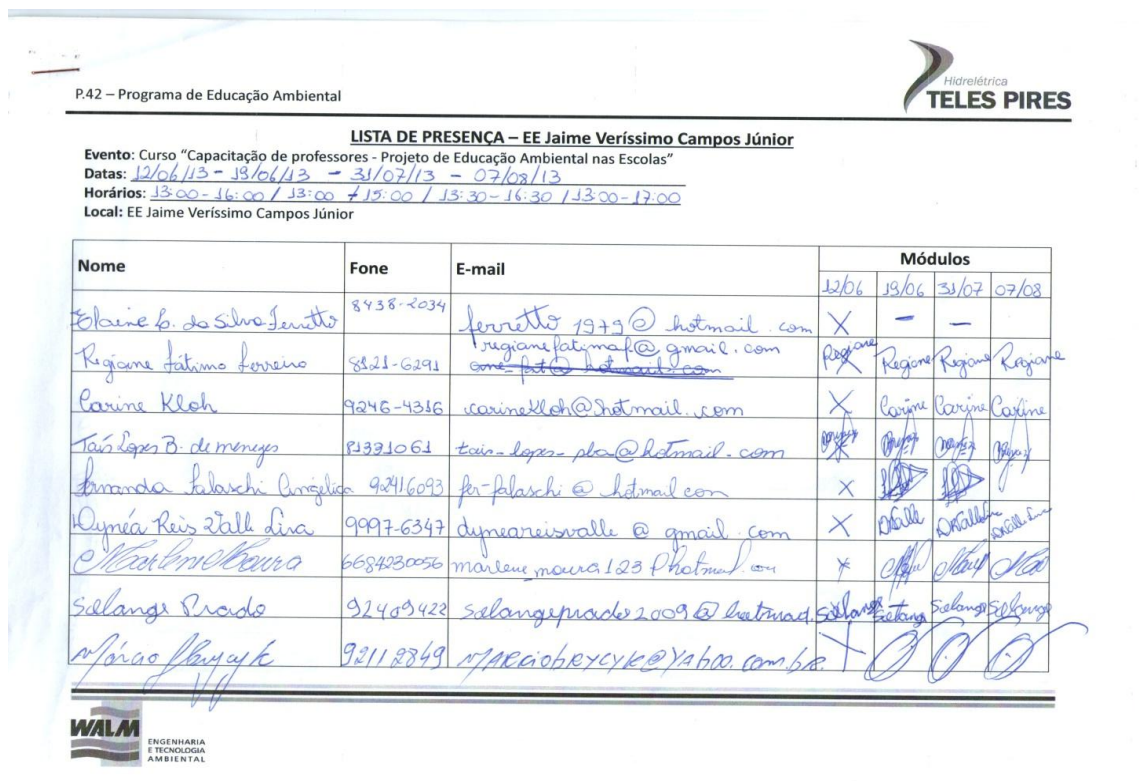 Hidrelétrica
TELES PIRES
P.42 – Programa de Educação Ambiental
LISTA DE PRESENÇA – EE Jaime Veríssimo Campos Júnior
Evento: Curso "Capacitação de professores - Projeto de Educação Ambiental nas Escolas"
Datas: 12/06/13 - 19/06/13 - 31/07/13 - 07/08/13
Horários: 13:00 - 16:00 / 13:00 + 15:00 / 13:30 - 16:30 / 13:00 - 17:00
Local: EE Jaime Veríssimo Campos Júnior
Nome Fone E-mail Módulos
12/06 19/06 31/07 07/08
Elaine da Silva Ferretto 8438-2034 ferretto1979@hotmail.com X - -
Regiane Fátima Ferreira 8121-6291 regianefatimaf@gmail.com Regiane Regiane Regiane Regiane
Carine Kloh 9246-4316 carinekloh@hotmail.com X Carine Carine Carine
Taís Lopes B. de menezes 81331061 tais-lopes-pba@hotmail.com
Fernanda Falaschi Angélica 92416093 fer-falaschi@hotmail.com X
Dynéa Reis Valle Lira 9997-6347 dyneareisvalle@gmail.com X DValle
Marlene Moura 6684230056 marlene moura123@hotmail.com X
Solange Prado 92409422 solangeprado2009@hotmail. Solange Solange Solange Solange
Márcio 92112849 MARCIObRYCYK@YAhOO.com.bR. X
WALM
ENGENHARIA
E TECNOLOGIA
AMBIENTAL